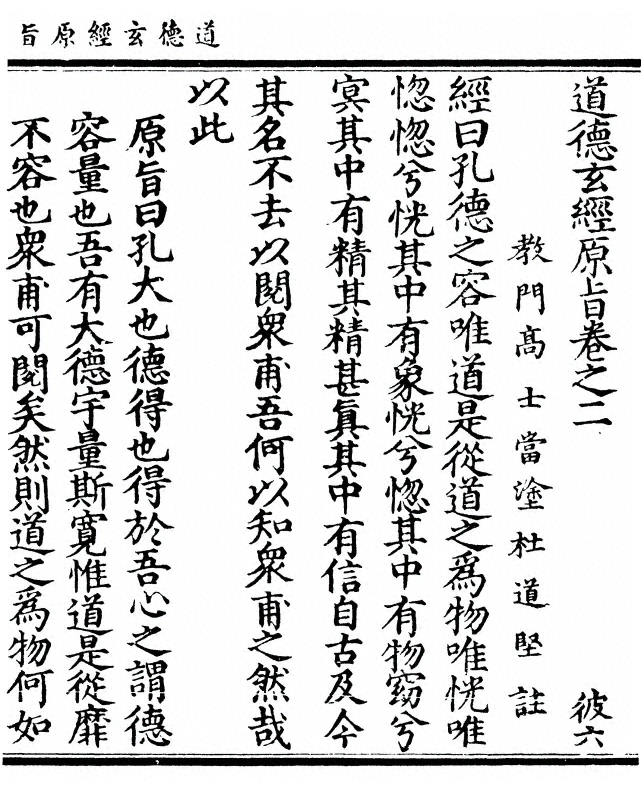 道德玄經原旨
道德玄經原旨卷之二 彼六
教門高士當塗杜道堅註
經曰孔德之容唯道是從道之爲物唯恍唯
惚惚兮恍其中有象恍兮惚其中有物窈兮
㝠其中有精其精甚眞其中有信自古及今
其名不去以閱衆甫吾何以知衆甫之然哉
以此
原旨曰孔大也德得也得於吾心之謂德
容量也吾有大德宇量斯寬惟道是從靡
不容也衆甫可閱矣然則道之爲物何如